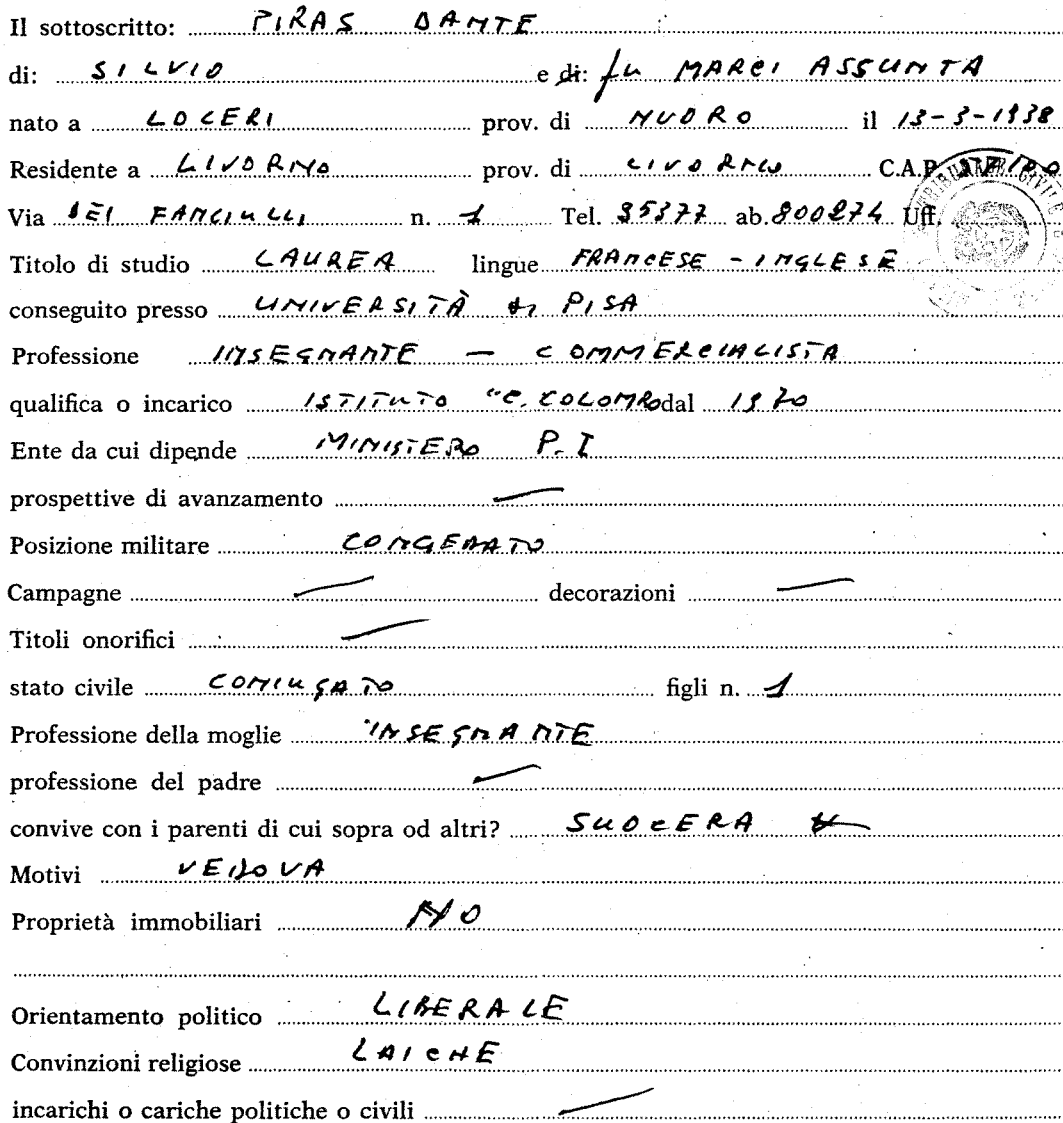 Il sottoscritto: PIRAS DANTE
di: SILVIO e di: fu MARCI ASSUNTA
nato a LOCERI prov. di NUORO il 13-3-1938
Residente a LIVORNO prov. di LIVORNO C.A.P.
Via DEI FANCIULLI n. 1 Tel. 35377 ab. 800274 Uff.
Titolo di studio LAUREA lingue FRANCESE - INGLESE
conseguito presso UNIVERSITÀ di PISA
Professione INSEGNANTE — COMMERCIALISTA
qualifica o incarico ISTITUTO "C. COLOMBO dal 1970
Ente da cui dipende MINISTERO P. I
prospettive di avanzamento —
Posizione militare CONGEDATO
Campagne — decorazioni —
Titoli onorifici —
stato civile CONIUGATO figli n. 1
Professione della moglie INSEGNANTE
professione del padre —
convive con i parenti di cui sopra od altri? SUOCERA
Motivi VEDOVA
Proprietà immobiliari NO
Orientamento politico LIBERALE
Convinzioni religiose LAICHE
incarichi o cariche politiche o civili —